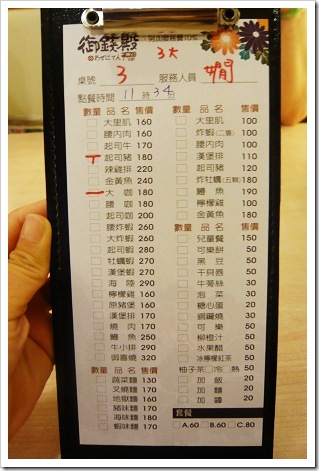 御錢殿
另加服務費10%
3大
桌號 3 服務人員
點餐時間 11 時 34 分
數量 品名 售價
大里肌 160
腰內肉 160
起司牛 170
起司豬 180
辣雞排 160
金黃魚 220
大咖 180
腰咖 180
起司咖 200
腰炸蝦 260
大炸蝦 260
起炸蝦 280
牡蠣蝦 270
漢堡蝦 270
海陸 290
檸檬雞 160
原豬堡 160
漢堡排 170
燒肉 170
鰻魚 250
牛小排 290
御喜燒 320
蔬菜麵 130
叉燒麵 170
地獄麵 160
豬味麵 170
海味麵 180
蝦味麵 170
數量 品名 售價
大里肌 100
炸蝦(二隻) 100
腰內肉 100
漢堡排 110
起司豬 120
炸牡蠣(五顆) 180
鰻魚 190
檸檬雞 100
金黃魚 180
兒童餐 150
可樂餅 50
黑豆 50
干貝唇 50
牛蒡絲 30
泡菜 30
糖心蛋 20
銅鑼燒 30
可樂 30
柳橙汁 50
水果醋 50
冰檸檬紅茶 50
柚子茶 冷 熱 50
加飯 20
加麵 20
加醬 20
套餐
A.60 B.60 C.80